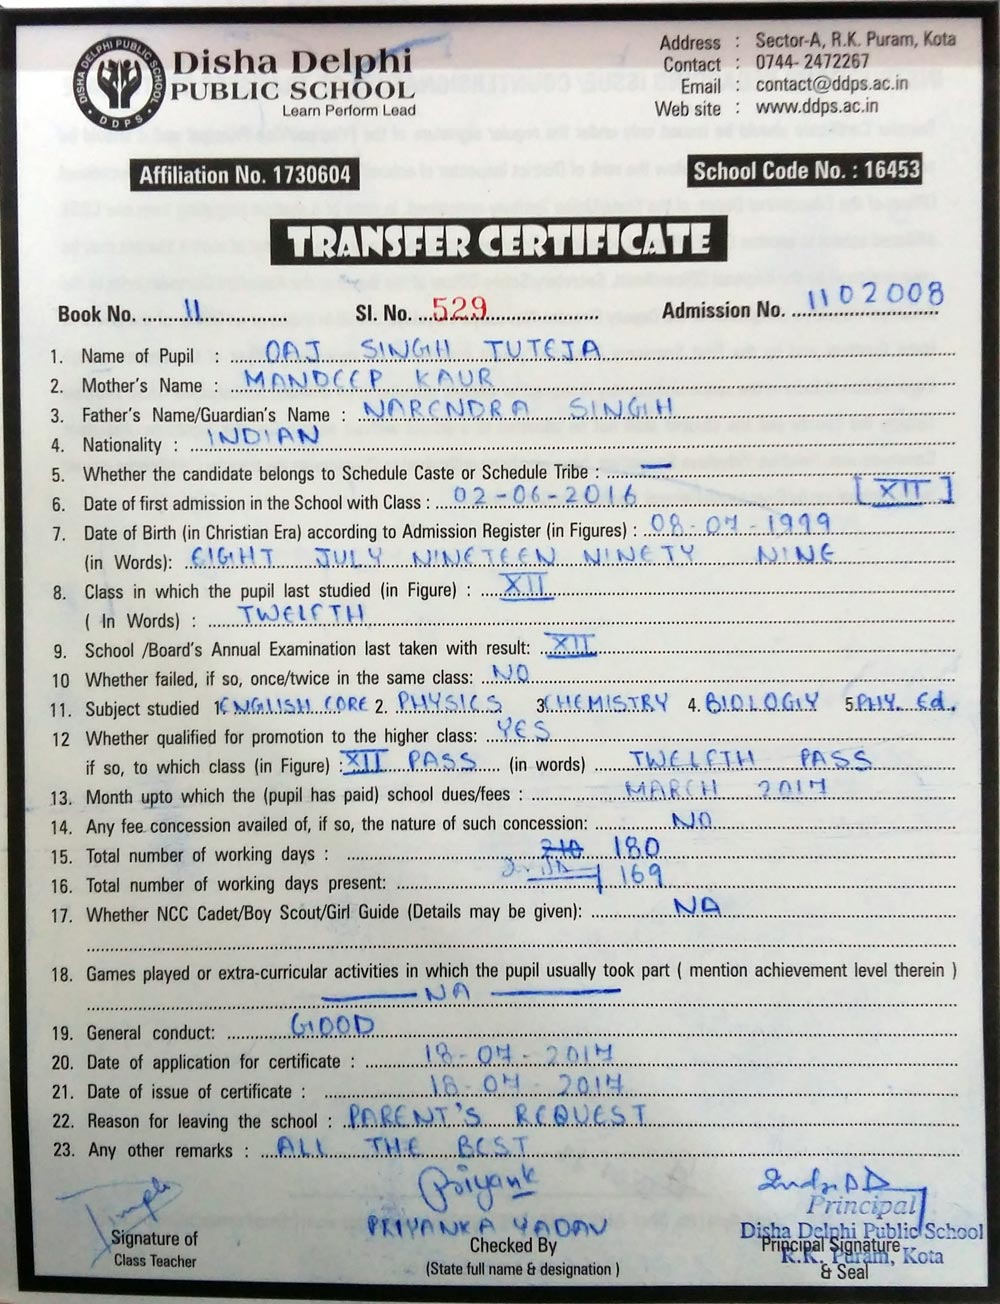 DISHA DELPHI PUBLIC SCHOOL
DDPS
Disha Delphi
PUBLIC SCHOOL
Learn Perform Lead
Address : Sector-A, R.K. Puram, Kota
Contact : 0744- 2472267
Email : contact@ddps.ac.in
Web site : www.ddps.ac.in
Affiliation No. 1730604
School Code No. : 16453
TRANSFER CERTIFICATE
Book No. 11 Sl. No. 529 Admission No. 1102008
1. Name of Pupil : OAJ SINGH TUTEJA
2. Mother's Name : MANDEEP KAUR
3. Father's Name/Guardian's Name : NARENDRA SINGH
4. Nationality : INDIAN
5. Whether the candidate belongs to Schedule Caste or Schedule Tribe : —
6. Date of first admission in the School with Class : 02-06-2016 [XII]
7. Date of Birth (in Christian Era) according to Admission Register (in Figures) : 08-07-1999
(in Words): EIGHT JULY NINETEEN NINETY NINE
8. Class in which the pupil last studied (in Figure) : XII
( In Words) : TWELFTH
9. School /Board's Annual Examination last taken with result: XII
10 Whether failed, if so, once/twice in the same class: NO
11. Subject studied 1. ENGLISH CORE 2. PHYSICS 3. CHEMISTRY 4. BIOLOGY 5. PHY. Ed.
12 Whether qualified for promotion to the higher class: YES
if so, to which class (in Figure) : XII PASS (in words) TWELFTH PASS
13. Month upto which the (pupil has paid) school dues/fees : MARCH 2017
14. Any fee concession availed of, if so, the nature of such concession: NO
15. Total number of working days : 210 180
16. Total number of working days present: 169
17. Whether NCC Cadet/Boy Scout/Girl Guide (Details may be given): NA
18. Games played or extra-curricular activities in which the pupil usually took part ( mention achievement level therein )
— NA —
19. General conduct: GOOD
20. Date of application for certificate : 18-07-2017
21. Date of issue of certificate : 18-07-2017
22. Reason for leaving the school : PARENT'S REQUEST
23. Any other remarks : ALL THE BEST
Priyank
PRIYANKA YADAV
Principal
Disha Delphi Public School
R.K. Puram, Kota
Signature of
Class Teacher
Checked By
(State full name & designation )
Principal Signature
& Seal